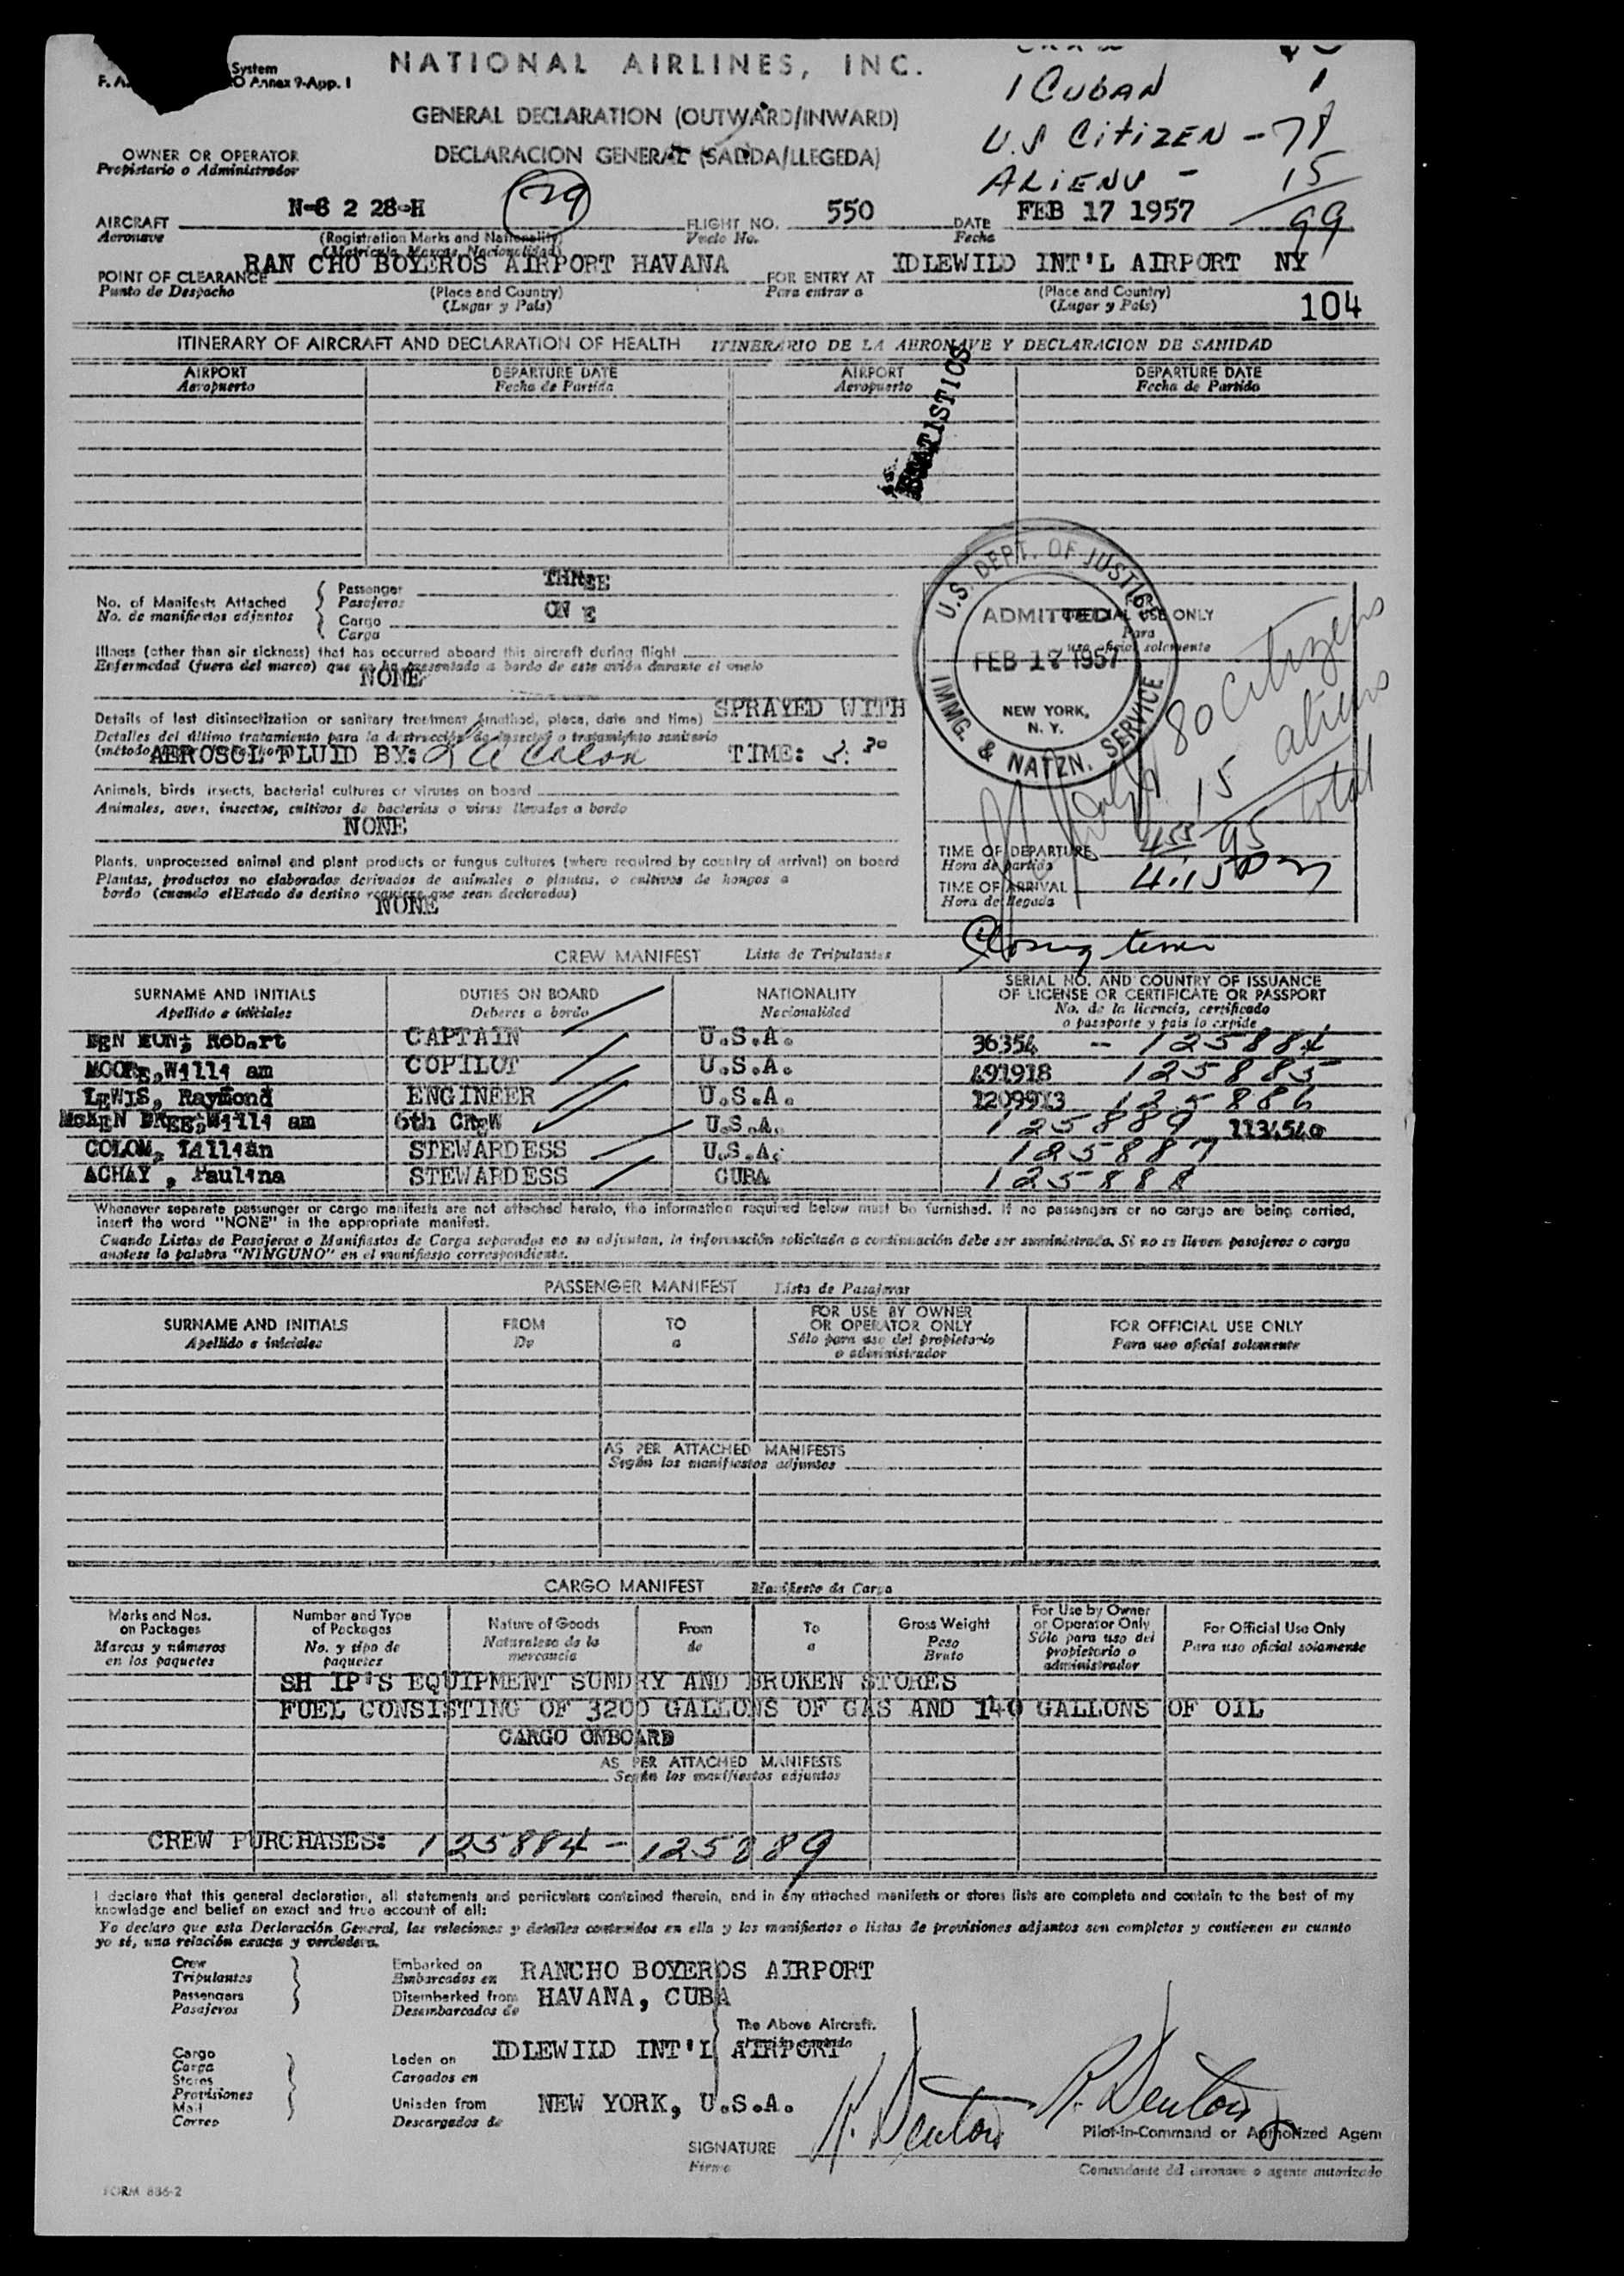 System
NATIONAL AIRLINES, INC.
F. A. O Annex 9-App. I
1 CUBAN 1
GENERAL DECLARATION (OUTWARD/INWARD)
U.S CitiZEN - 79
OWNER OR OPERATOR
DECLARACION GENERAL (SALIDA/LLEGEDA)
Propietario o Administrador
ALiENS - 15
29
99
AIRCRAFT N-8 2 28-H FLIGHT NO. 550 DATE FEB 17 1957
Aeronave (Registration Marks and Nationality) Vuelo No. Fecha
POINT OF CLEARANCE RAN CHO BOYEROS AIRPORT HAVANA FOR ENTRY AT IDLEWILD INT'L AIRPORT NY
Punto de Despacho (Place and Country) Para entrar a (Place and Country)
(Lugar y País) (Lugar y País) 104
ITINERARY OF AIRCRAFT AND DECLARATION OF HEALTH ITINERARIO DE LA AERONAVE Y DECLARACION DE SANIDAD
AIRPORT DEPARTURE DATE AIRPORT DEPARTURE DATE
Aeropuerto Fecha de Partida Aeropuerto Fecha de Partida
STATISTICS
No. of Manifests Attached Passenger THREE
No. de manifiestos adjuntos Pasajeros
Cargo ON E
Carga
Illness (other than air sickness) that has occurred aboard this aircraft during flight
Enfermedad (fuera del mareo) que se ha presentado a bordo de este avión durante el vuelo
NONE
Details of last disinsectization or sanitary treatment (method, place, date and time) SPRAYED WITH
Detalles del último tratamiento para la destrucción de insectos o tratamiento sanitario
AEROSOL FLUID BY: TIME:
Animals, birds insects, bacterial cultures or viruses on board
Animales, aves, insectos, cultivos de bacterias o virus llevados a bordo
NONE
Plants, unprocessed animal and plant products or fungus cultures (where required by country of arrival) on board
Plantas, productos no elaborados derivados de animales o plantas, o cultivos de hongos a
bordo (cuando elEstado de destino requiere que sean declarados)
NONE
U.S. DEPT. OF JUSTICE
ADMITTED
FEB 17 1957
NEW YORK,
N. Y.
IMMG. & NATZN. SERVICE
FOR OFFICIAL USE ONLY
Para uso oficial solamente
80 citizens
15 aliens
95 total
TIME OF DEPARTURE 455
Hora de partida
TIME OF ARRIVAL 4:15 pm
Hora de llegada
Closing time
CREW MANIFEST Lista de Tripulantes
SURNAME AND INITIALS DUTIES ON BOARD NATIONALITY SERIAL NO. AND COUNTRY OF ISSUANCE
OF LICENSE OR CERTIFICATE OR PASSPORT
Apellido e iniciales Deberes a bordo Nacionalidad No. de la licencia, certificado
o pasaporte y país lo expide
Robert CAPTAIN U.S.A. 36354 -- 125884
MOORE, Willi am COPILOT U.S.A. 491918 125885
LEWIS, Raymond ENGINEER U.S.A. 1209913 125886
Willi am 6th CReW U.S.A. 125889 1134540
COLOM, Lillian STEWARDESS U.S.A. 125887
ACHAY , Paulina STEWARDESS CUBA 125888
Whenever separate passenger or cargo manifests are not attached hereto, the information required below must be furnished. If no passengers or no cargo are being carried,
insert the word "NONE" in the appropriate manifest.
Cuando Listas de Pasajeros o Manifiestos de Carga separados no se adjuntan, la información solicitada a continuación debe ser suministrada. Si no se llevan pasajeros o carga
anotese la palabra "NINGUNO" en el manifiesto correspondiente.
PASSENGER MANIFEST Lista de Pasajeros
SURNAME AND INITIALS FROM TO FOR USE BY OWNER OR OPERATOR ONLY FOR OFFICIAL USE ONLY
Apellido e iniciales De a Sólo para uso del propietario o administrador Para uso oficial solamente
AS PER ATTACHED MANIFESTS
Según los manifiestos adjuntos
CARGO MANIFEST Manifiesto de Carga
Marks and Nos. on Packages Number and Type of Packages Nature of Goods From To Gross Weight For Use by Owner or Operator Only For Official Use Only
Marcas y números en los paquetes No. y tipo de paquetes Naturaleza de la mercancia de a Peso Bruto Sólo para uso del propietario o administrador Para uso oficial solamente
SH IP'S EQUIPMENT SUNDRY AND BROKEN STORES
FUEL CONSISTING OF 3200 GALLONS OF GAS AND 140 GALLONS OF OIL
CARGO ONBOARD
AS PER ATTACHED MANIFESTS
Según los manifiestos adjuntos
CREW PURCHASES: 125884 - 125889
I declare that this general declaration, all statements and particulars contained therein, and in any attached manifests or stores lists are complete and contain to the best of my
knowledge and belief an exact and true account of all:
Yo declaro que esta Declaración General, las relaciones y detalles contenidos en ella y los manifiestos o listas de provisiones adjuntos son completos y contienen en cuanto
yo sé, una relación exacta y verdadera.
Crew Embarked on RANCHO BOYEROS AIRPORT
Tripulantes Embarcados en
Passengers Disembarked from HAVANA, CUBA
Pasajeros Desembarcados de
The Above Aircraft.
Cargo Laden on IDLEWILD INT'L AIRPORT
Carga Cargados en
Stores
Provisiones Unladen from NEW YORK, U.S.A.
Mail Descargados de
Correo
SIGNATURE H. Denton R. Denton
Firma
Pilot-in-Command or Authorized Agent
Comandante del aeronave o agente autorizado
FORM 886-2